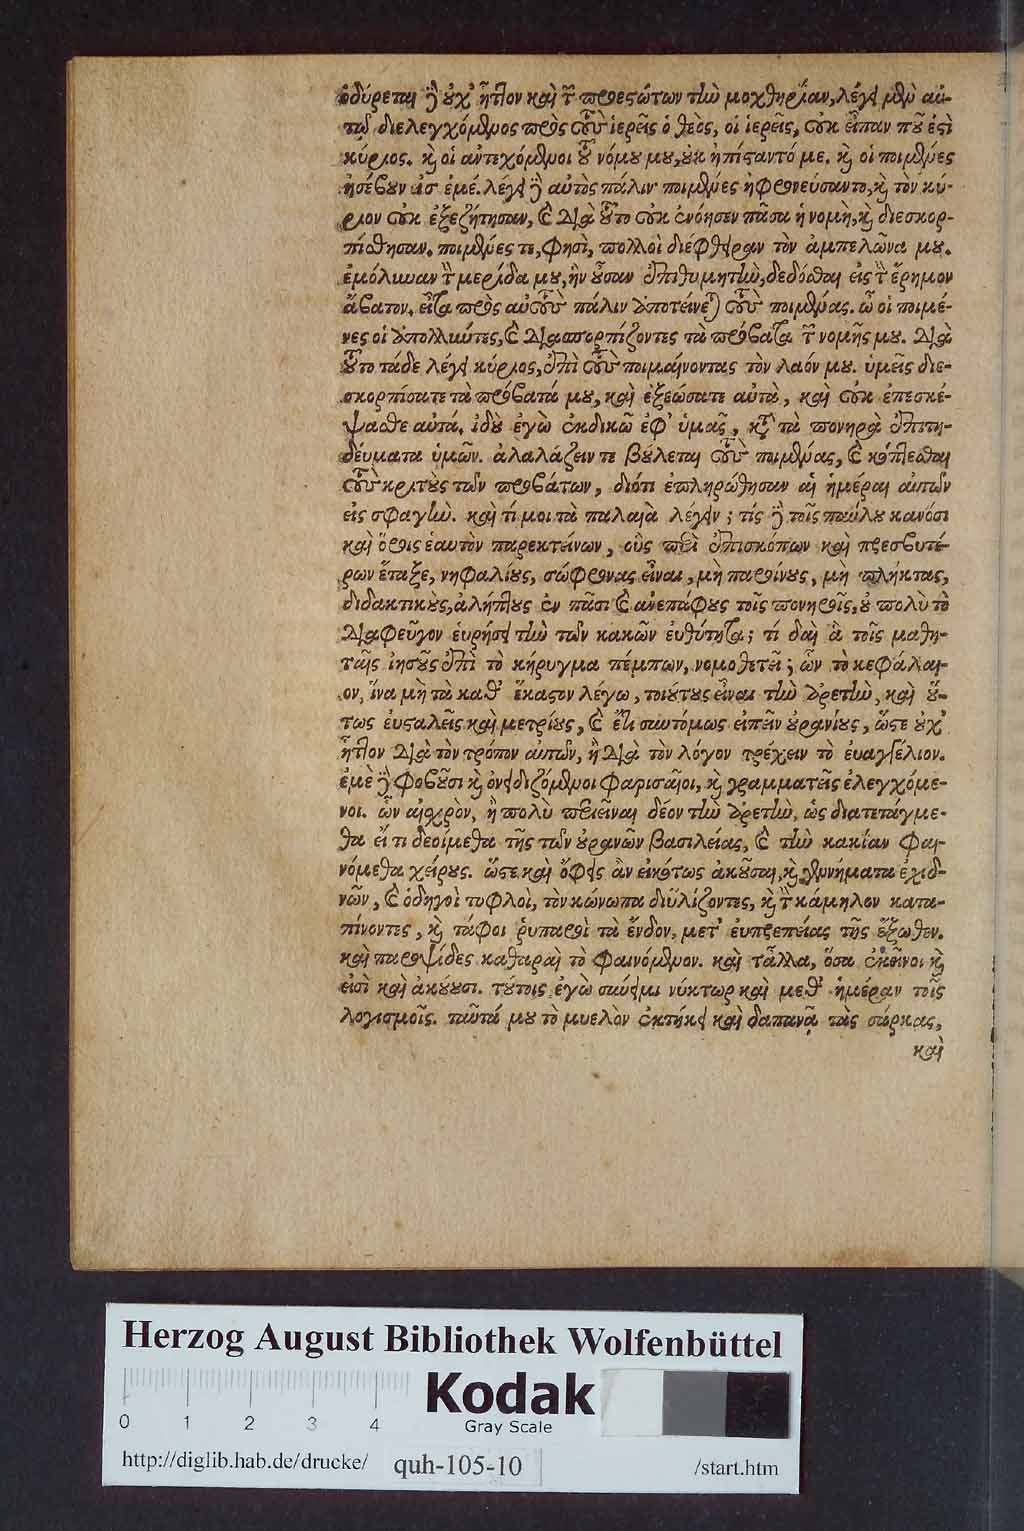 ὀδύρεται γὰρ οὐχ' ἧττον καὶ τὴν προεστώτων τὴν μοχθηρίαν, λέγει μὲν αὐ-
τῷ διελεγχόμενος πρὸς τοὺς ἱερεῖς ὁ θεὸς, οἱ ἱερεῖς, οὐκ εἶπαν ποῦ ἐστὶ
κύριος. καὶ οἱ ἀντεχόμενοι τοῦ νόμου μου, οὐκ ἠπίσταντό με. καὶ οἱ ποιμένες
ἠσέβουν εἰς ἐμέ. λέγει δὲ αὐτὸς πάλιν· ποιμένες ἠφρονεύσαντο, καὶ τὸν κύ-
ριον οὐκ ἐξεζήτησαν, καὶ διὰ τοῦτο οὐκ ἐνόησεν πᾶσα ἡ νομὴ, καὶ διεσκορ-
πίσθησαν. ποιμένες τε, φησὶ, πολλοὶ διέφθειραν τὸν ἀμπελῶνα μου.
ἐμόλυναν τὴν μερίδα μου, ἣν οὖσαν ἐπιθυμητὴν, δεδόσθαι εἰς τὴν ἔρημον
ἄβατον. εἶτα πρὸς αὐτοὺς πάλιν ἀποτείνεται τοὺς ποιμένας. ὦ οἱ ποιμέ-
νες οἱ ἀπολλύντες, καὶ διασκορπίζοντες τὰ πρόβατα τῆς νομῆς μου. διὰ
τοῦτο τάδε λέγει κύριος, ἐπὶ τοὺς ποιμαίνοντας τὸν λαόν μου. ὑμεῖς διε-
σκορπίσατε τὰ πρόβατά μου, καὶ ἐξεώσατε αὐτὰ, καὶ οὐκ ἐπεσκέ-
ψασθε αὐτά. ἰδοὺ ἐγὼ ἐκδικῶ ἐφ' ὑμᾶς, κατὰ τὰ πονηρὰ ἐπιτη-
δεύματα ὑμῶν. ἀλαλάζειν τε βούλεται τοὺς ποιμένας, καὶ κόπτεσθαι
τοὺς κριτοὺς τῶν προβάτων, διότι ἐπληρώθησαν αἱ ἡμέραι αὐτῶν
εἰς σφαγὴν. καὶ τί μοι τὰ παλαιὰ λέγειν; τίς δὲ τοῖς παύλου κανόσι
καὶ ὅροις ἑαυτὸν παρεκτείνων, οὓς περὶ ἐπισκόπων καὶ πρεσβυτέ-
ρων ἔταξε, νηφαλίους, σώφρονας εἶναι, μὴ παροίνους, μὴ πλήκτας,
διδακτικοὺς, ἀλήπτους ἐν πᾶσι καὶ ἀνεπάφους τοῖς πονηροῖς, οὐ πολὺ τὸ
διαφεῦγον εὑρήσει τὴν τῶν κακῶν εὐθύτητα; τί δαὶ ἃ τοῖς μαθη-
ταῖς ἰησοῦς ἐπὶ τὸ κήρυγμα πέμπων, νομοθετεῖ; ὧν τὸ κεφάλαι-
ον, ἵνα μὴ τὰ καθ' ἕκαστον λέγω, τοιούτους εἶναι τὴν ἀρετὴν, καὶ οὕ-
τως εὐσταλεῖς καὶ μετρίους, καὶ ἔτι συντόμως εἰπεῖν οὐρανίους, ὥστε οὐχ'
ἧττον διὰ τὸν τρόπον αὐτῶν, ἢ διὰ τὸν λόγον τρέχειν τὸ εὐαγγέλιον.
ἐμὲ δὲ φοβοῦσι καὶ ὀνειδιζόμενοι φαρισαῖοι, καὶ γραμματεῖς ἐλεγχόμε-
νοι. ὧν αἰσχρὸν, ἢ πολὺ περιεῖναι δέον τὴν ἀρετὴν, ὡς διατετάγμε-
θα εἴ τι δεοίμεθα τῆς τῶν οὐρανῶν βασιλείας, καὶ τὴν κακίαν φαι-
νόμεθα χείρους. ὥστε καὶ ὄφεις ἂν εἰκότως ἀκοῦσαι, καὶ γεννήματα ἐχιδ-
νῶν, καὶ ὁδηγοὶ τυφλοὶ, τὸν κώνωπα διϋλίζοντες, καὶ τὴν κάμηλον κατα-
πίνοντες, καὶ τάφοι ῥυπαροὶ τὰ ἔνδον, μετ' εὐπρεπείας τῆς ἔξωθεν.
καὶ παροψίδες καθαραὶ τὸ φαινόμενον. καὶ τἆλλα, ὅσα ἐκεῖνοι καὶ
εἰσὶ καὶ ἀκούουσι. τούτοις ἐγὼ σύνειμι νύκτωρ καὶ μεθ' ἡμέραν τοῖς
λογισμοῖς. ταῦτά μου τὸ μυελὸν ἐκτήκει καὶ δαπανᾷ τὰς σάρκας,
καὶ
Herzog August Bibliothek Wolfenbüttel
0 1 2 3 4
Kodak
Gray Scale
http://diglib.hab.de/drucke/ quh-105-10 /start.htm